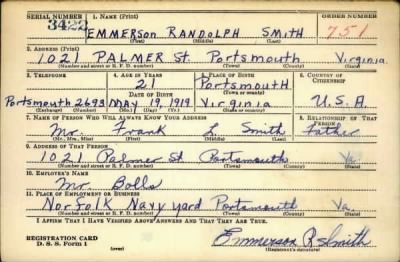 SERIAL NUMBER 1. NAME (Print) ORDER NUMBER
3422 EMMERSON RANDOLPH SMITH 751
(First) (Middle) (Last)
2. ADDRESS (Print)
1021 PALMER St. Portsmouth Virginia
(Number and street or R. F. D. number) (Town) (County) (State)
3. TELEPHONE 4. AGE IN YEARS 5. PLACE OF BIRTH 6. COUNTRY OF CITIZENSHIP
21 Portsmouth
DATE OF BIRTH (Town or county)
Portsmouth 2693 May 19, 1919 Virginia U.S.A.
(Exchange) (Number) (Mo.) (Day) (Yr.) (State or country)
7. NAME OF PERSON WHO WILL ALWAYS KNOW YOUR ADDRESS 8. RELATIONSHIP OF THAT PERSON
Mr. Frank L. Smith Father
(Mr., Mrs., Miss) (First) (Middle) (Last)
9. ADDRESS OF THAT PERSON
1021 Palmer St Portsmouth Va
(Number and street or R. F. D. number) (Town) (County) (State)
10. EMPLOYER'S NAME
Mr. Bolls
11. PLACE OF EMPLOYMENT OR BUSINESS
Norfolk Navy yard Portsmouth Va
(Number and street or R. F. D. number) (Town) (County) (State)
I AFFIRM THAT I HAVE VERIFIED ABOVE ANSWERS AND THAT THEY ARE TRUE.
REGISTRATION CARD
D. S. S. Form 1 (over) Emmerson R Smith
(Registrant's signature)